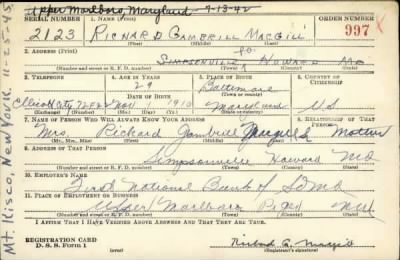 Upper Marlboro, Maryland 9-13-42
SERIAL NUMBER 1. NAME (Print) ORDER NUMBER
2123 RICHARD GAMBRILL MACGILL 997
(First) (Middle) (Last)
2. ADDRESS (Print)
SIMPSONVILLE PO HOWARD MD
(Number and street or R. F. D. number) (Town) (County) (State)
3. TELEPHONE 4. AGE IN YEARS 5. PLACE OF BIRTH 6. COUNTRY OF CITIZENSHIP
29 Baltimore
DATE OF BIRTH (Town or county)
Ellicott City Nov 1 1910 Maryland U S
(Exchange) (Number) (Mo.) (Day) (Yr.) (State or country)
7. NAME OF PERSON WHO WILL ALWAYS KNOW YOUR ADDRESS 8. RELATIONSHIP OF THAT PERSON
Mrs. Richard Gambrill Macgill Mother
(Mr., Mrs., Miss) (First) (Middle) (Last)
9. ADDRESS OF THAT PERSON
Simpsonville Howard Md
(Number and street or R. F. D. number) (Town) (County) (State)
10. EMPLOYER'S NAME
First National Bank of So Md
11. PLACE OF EMPLOYMENT OR BUSINESS
Upper Marlboro Md
(Number and street or R. F. D. number) (Town) (County) (State)
I AFFIRM THAT I HAVE VERIFIED ABOVE ANSWERS AND THAT THEY ARE TRUE.
REGISTRATION CARD
D. S. S. Form 1
Richard G. Macgill
(Registrant's signature)
Mt. Kisco, New York. 11-25-45